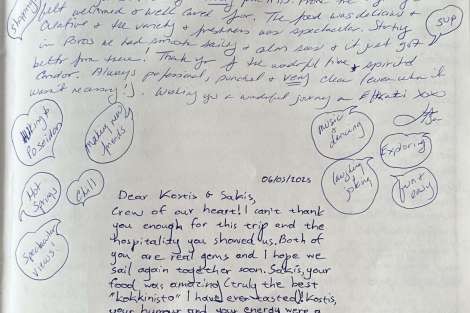 felt welcomed & well cared for. The food was delicious &
creative & the variety & freshness was spectacular. Starting
in Poros we had smooth sailing & calm seas & it just got
better from there! Thank you for the wonderful time & spirited
candor. Always professional, punctual & very clear (even when it
wasn't necessary!). Wishing you a wonderful journey on Efkati xoxo
SUP
Talking to
Poseidon
making new
friends
music &
dancing
Exploring
Hot
Springs
Chill
laughing
joking
Spectacular
views!
06/05/2025
Dear Kostis & Sakis,
Crew of our heart! I can't thank
you enough for this trip and the
hospitality you showed us. Both of
you are real gems and I hope we
sail again together soon. Sakis, your
food was amazing (truly the best
"kokkinisto" I have ever tasted! Kostis,
your humour and your energy were a